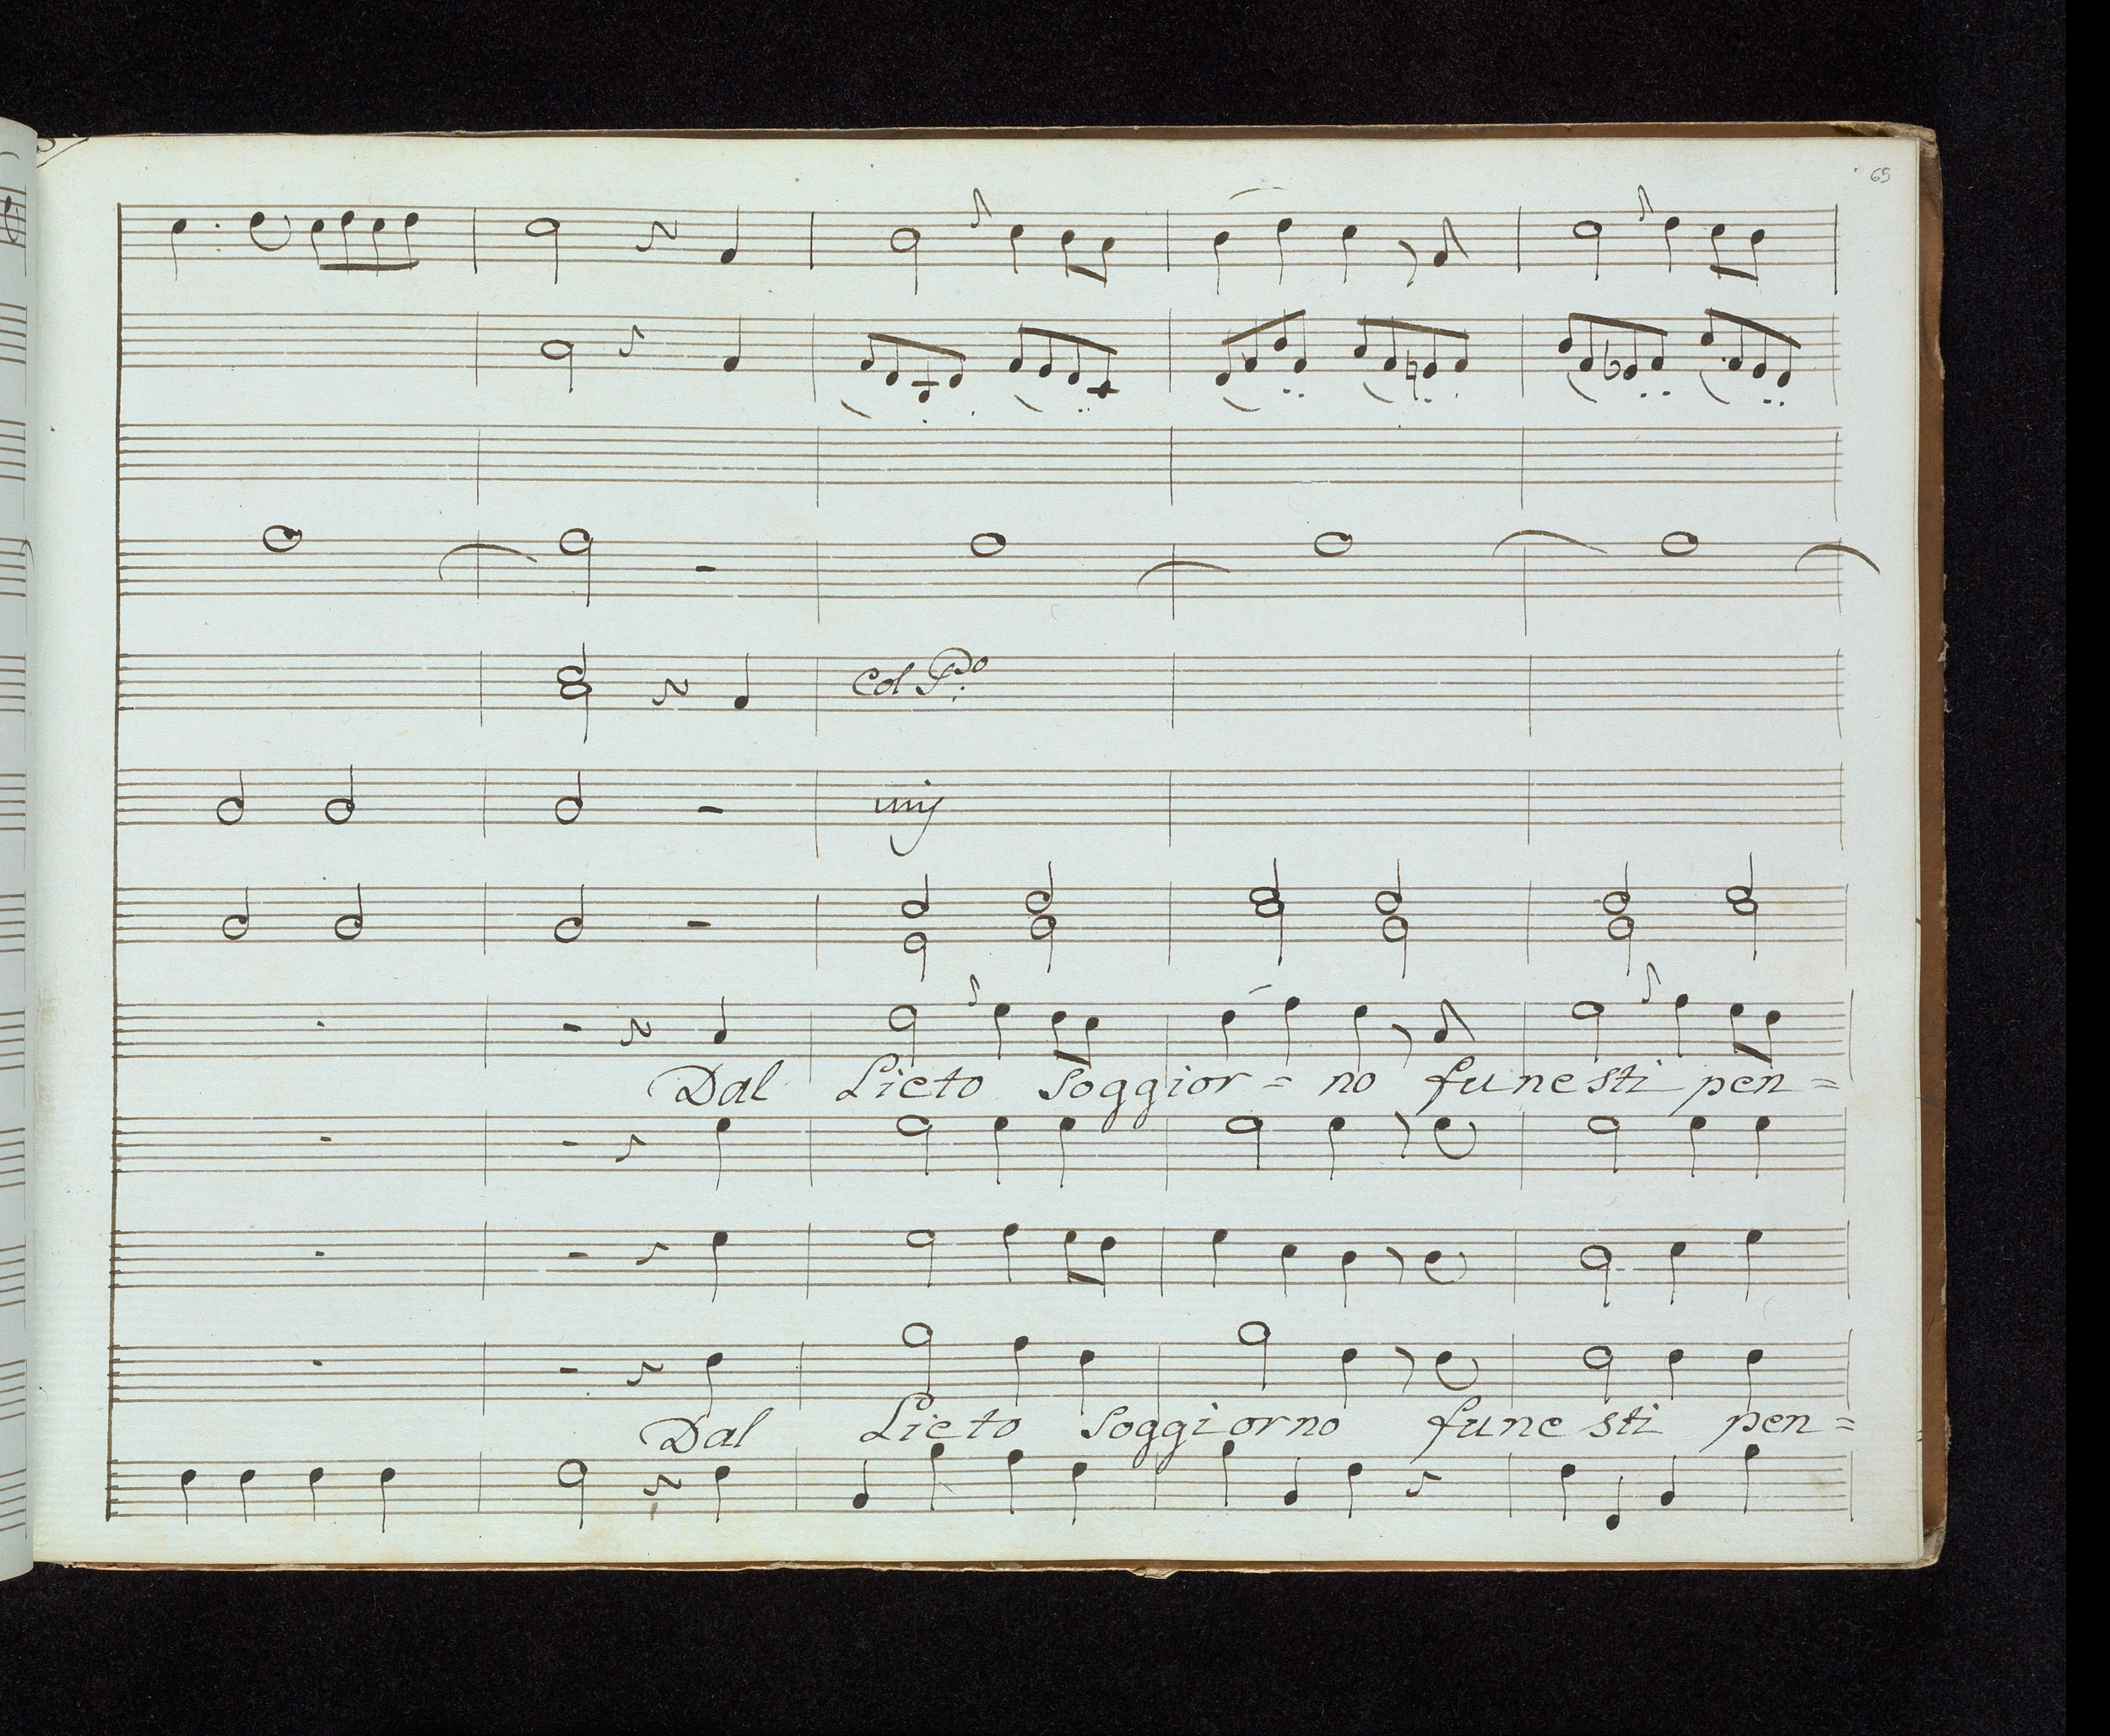 65
Col Pdo
unis
Dal Lieto Soggior = no funesti pen =
Dal Lieto Soggiorno funesti pen =